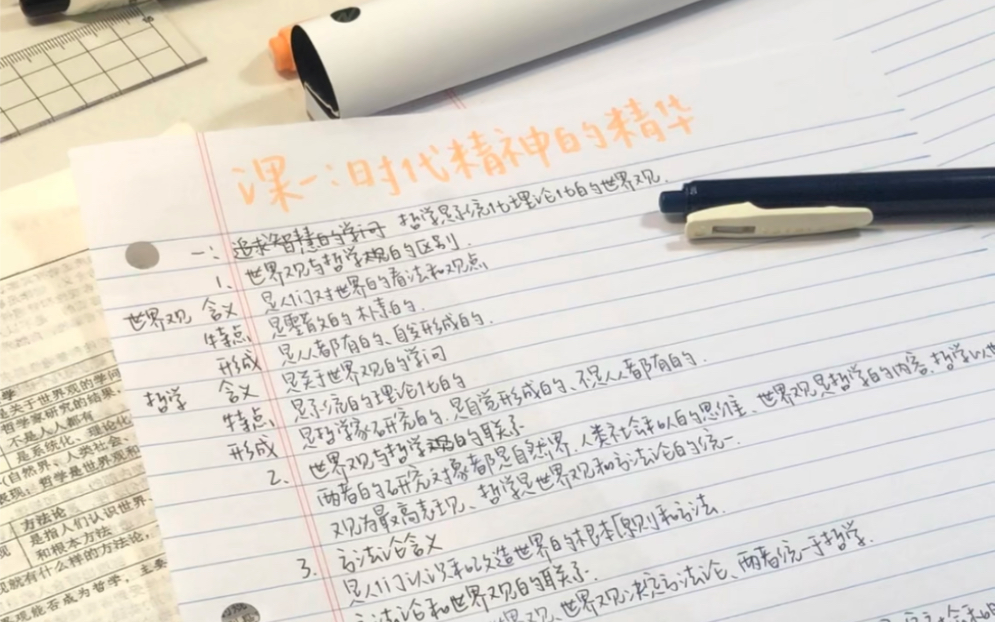 课一：时代精神的精华
一：追求智慧的学问 哲学是系统化理论化的世界观.
1、世界观与哲学观的区别.
世界观 含义 是人们对世界的看法和观点
特点 是零散的朴素的.
形成 是人人都有的、自发形成的.
哲学 含义 是关于世界观的学问
特点 是系统的理论化的
形成 是哲学家研究的、是自觉形成的、不是人人都有的.
2、世界观与哲学观的联系
两者的研究对象都是自然界、人类社会和人的思维、世界观是哲学的内容、哲学以世
观为最高表现、哲学是世界观和方法论的统一.
3. 方法论含义
是人们认识和改造世界的根本原则和方法.
方法论和世界观的联系.
世界观决定方法论、两者统一于哲学.
学
是关于世界观的学问
哲学家研究的结果
不是人人都有
是系统化、理论化
（自然界、人类社会、
表现；哲学是世界观和
方法论
是指人们认识世界、
和根本方法
观就有什么样的方法论，
观能否成为哲学，主要